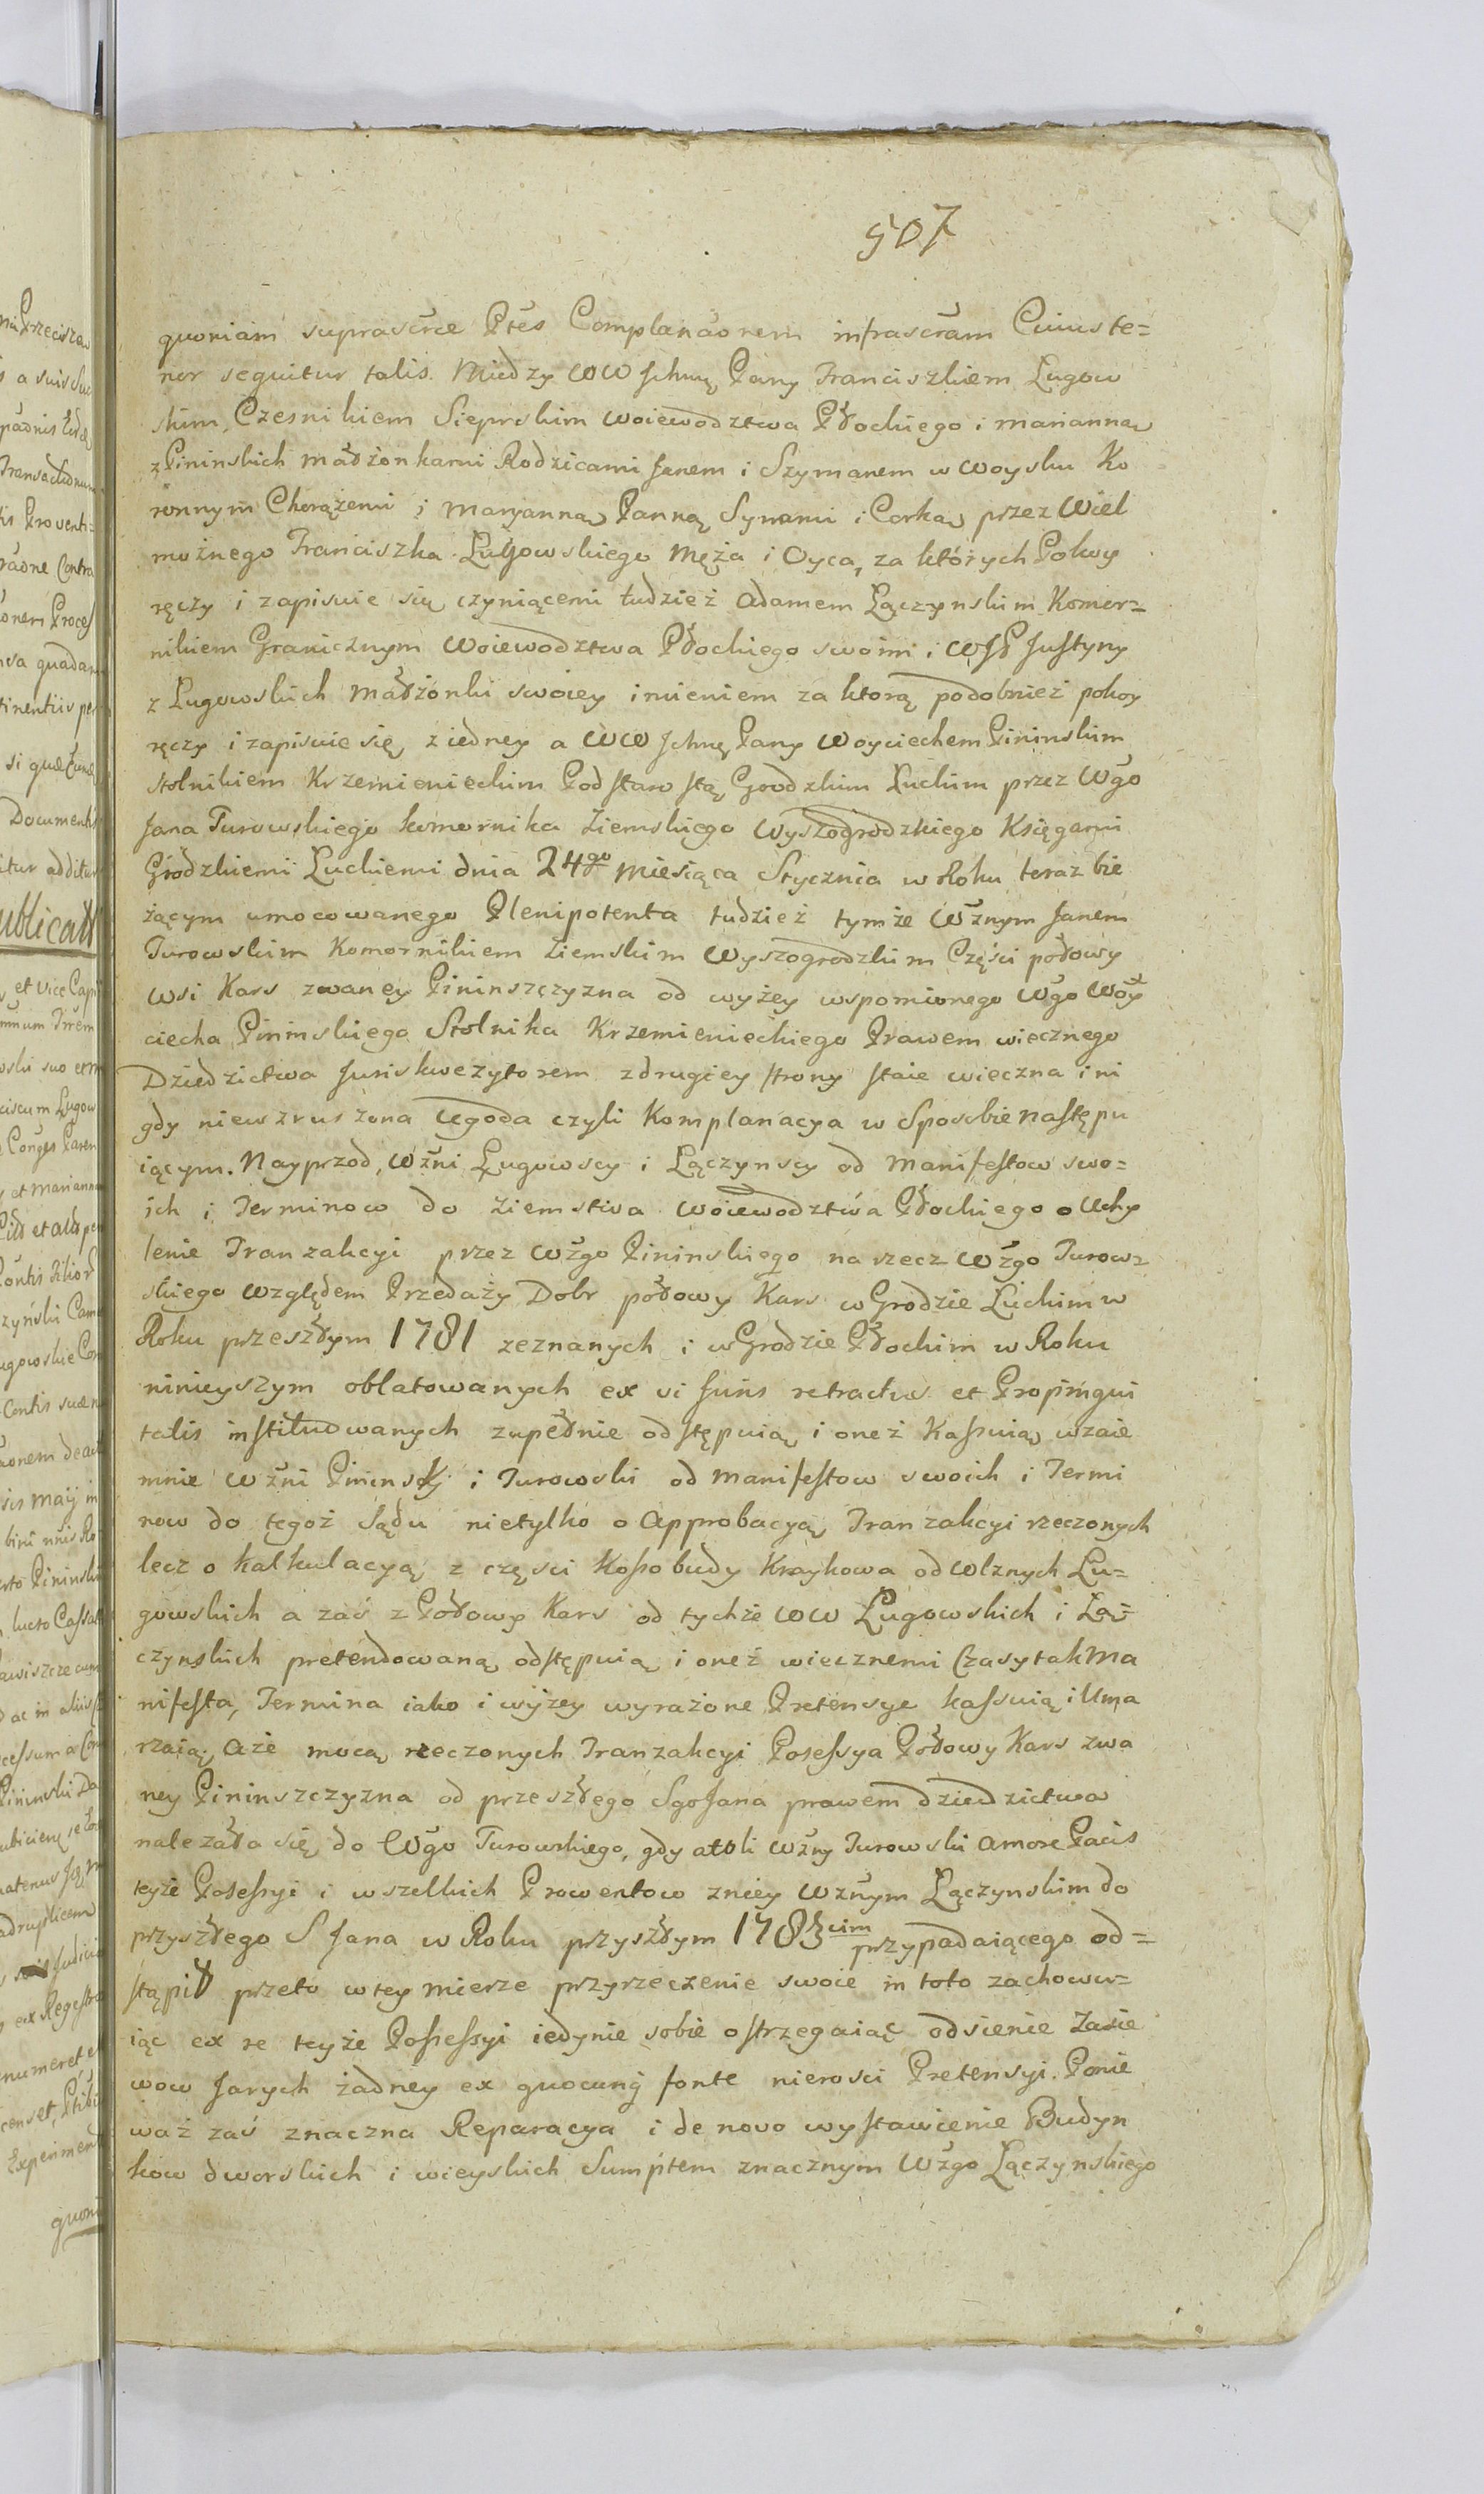 507
quoniam suprascrce Ptes Complanaorem infrascram Cuius te=
nor sequitur talis. Między WW Jchmę Pany Franciszkiem Ługow
skim, Czesnikiem Sieprskim Woiewodztwa Płockiego i Marianną
z Pininskich małżonkami Rodzicami Janem i Szymanem w Woysku Ko
ronnym Chorążemi i Maryanną Panną Synami i Corką przez Wiel
możnego Franciszka Ługowskiego Męża i Oyca, za których Pokoy
ręczy i zapisuie się czyniącemi tudzież Adamem Łączynskim Komor=
nikiem Granicznym Woiewodztwa Płockiego swoim i WJP Justyny
z Ługowskich małżonki swoiey imieniem za ktorą podobnież pokoy
ręczy i zapisuie się z iedney a WW Jchmę Pany Woyciechem Pininskim
Stolnikiem Krzemienieckim Podstarostą Grodzkim Łuckim przez Wgo
Jana Turowskiego komornika Ziemskiego Wyszogrodzkiego Księgami
Grodzkiemi Łuckiemi dnia 24go Miesiąca Stycznia w Roku teraz bie
żącym umocowanego Plenipotenta tudzież tymże Wżnym Janem
Turowskim Komornikiem Ziemskim Wyszogrodzkim Części połowy
Wsi Kars zwaney Pininszczyzna od wyżey wspomionego Wgo Woy
ciecha Pininskiego Stolnika Krzemienieckiego Prawem wiecznego
Dziedzictwa Juriskwezytorem z drugiey strony staie wieczna i ni
gdy niewzruszona Ugoda czyli Komplanacya w Sposobie następu
iącym. Nayprzod, Wżni Ługowscy i Łączynscy od Manifestow swo=
ich i Terminow do Ziemstwa Woiewodztwa Płockiego o Uchy
lenie Tranzakcyi przez Wżgo Pininskiego na rzecz Wżgo Turow=
skiego względem Przedaży Dobr połowy Kars w Grodzie Łuckim w
Roku przeszłym 1781 zeznanych i w Grodzie Płockim w Roku
ninieyszym oblatowanych ex vi Juris retractus et Propingui
tatis instituowanych zupełnie odstępuią i oneż Kassuią wzaie
mnie Wżni Pininsky i Turowski od Manifestow swoich i Termi
now do tegoż Sądu nietylko o Approbacyą Tranzakcyi rzeczonych
lecz o kalkulacyą z części Kossobudy Kraykowa od Wlznych Łu=
gowskich a zaś z Połowy Kars od tychże WW Ługowskich i Łą=
czynskich pretendowaną odstępuią i oneż wiecznemi Czasy tak Ma
nifesta, Termina iako i wyżey wyrażone Pretensye kassuią i Uma
rzaią, Aże mocą rzeczonych Tranzakcyi Posessya Połowy Kars zwa
ney Pininszczyzna od przeszłego Sgo Jana prawem dziedzictwa
należała się do Wgo Turowskiego, gdy atoli Wżny Turowski amore Pacis
teyże Posessyi i wszelkich Prowentow zniey Wżnym Łączynskim do
przyszłego S Jana w Roku przyszłym 1783cim przypadaiącego od=
stąpił przeto w tey mierze przyrzeczenie swoie in toto zachowu=
iąc ex re teyże Possessyi iedynie sobie ostrzegaiąc odsienie Zasie
wow Jarych żadney ex quocunq fonte nierosci Pretensyi. Ponie
waż zaś znaczna Reparacya i de novo wystawienie Budyn
kow dworskich i wieyskich Sumptem znacznym Wżgo Łączynskiego